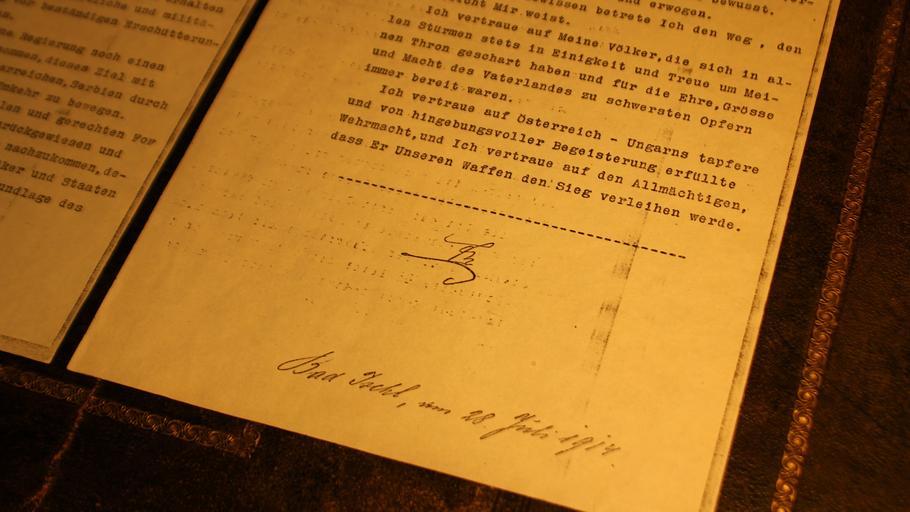 erhalten
iche und militä-
vor beständigen Erschütterun-
e Regierung noch einen
ommen, dieses Ziel mit
rreichen, Serbien durch
mkehr zu bewegen.
len und gerechten For
rückgewiesen und
nachzukommen, de-
ker und Staaten
undlage des
und erwogen.
bewusst.
icht Mir weist.
wissen betrete Ich den Weg , den
Ich vertraue auf Meine Völker, die sich in al-
len Stürmen stets in Einigkeit und Treue um Mei-
nen Thron geschart haben und für die Ehre, Grösse
und Macht des Vaterlandes zu schwersten Opfern
immer bereit waren.
Ich vertraue auf Österreich - Ungarns tapfere
und von hingebungsvoller Begeisterung erfüllte
Wehrmacht, und Ich vertraue auf den Allmächtigen,
dass Er Unseren Waffen den Sieg verleihen werde.
Bad Ischl, am 28. Juli 1914.